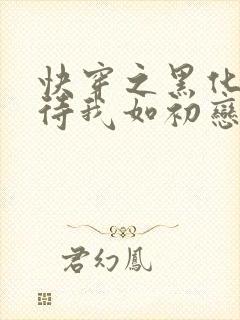 快穿之黑化
待我如初戀
君幻鳳